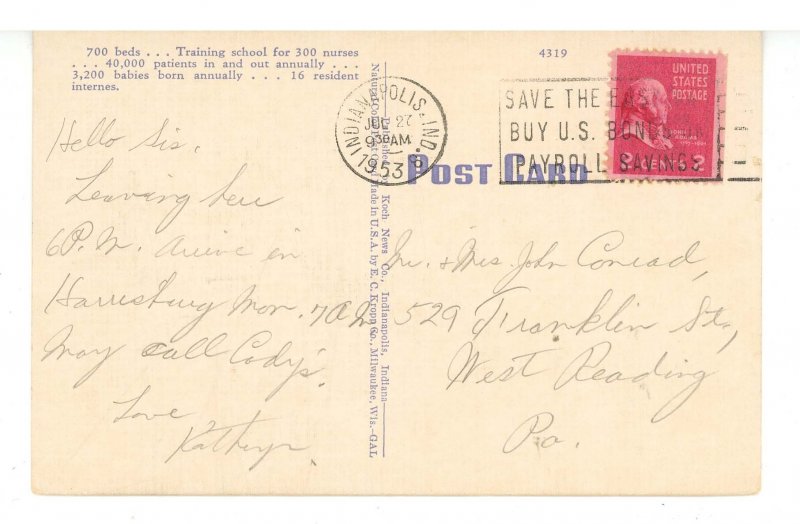 700 beds . . . Training school for 300 nurses
. . . 40,000 patients in and out annually . . .
3,200 babies born annually . . . 16 resident
internes.
4319
UNITED
STATES
POSTAGE
JOHN
ADAMS
2
INDIANAPOLIS, IND.
JUL 27
930 AM
1953
6
SAVE THE EASY
BUY U.S. BONDS
PAYROLL SAVINGS
POST CARD
Published by Koch News Co., Indianapolis, Indiana—
Natural Color Post Card Made in U.S.A. by E. C. Kropp Co., Milwaukee, Wis.—GAL
Hello Sis,
Leaving here
6 P.M. arrive in
Harrisburg Mon. 7 A.M.
May call Cody's.
Love
Kathryn
Mr. & Mrs. John Conrad,
529 Franklin St.,
West Reading
Pa.